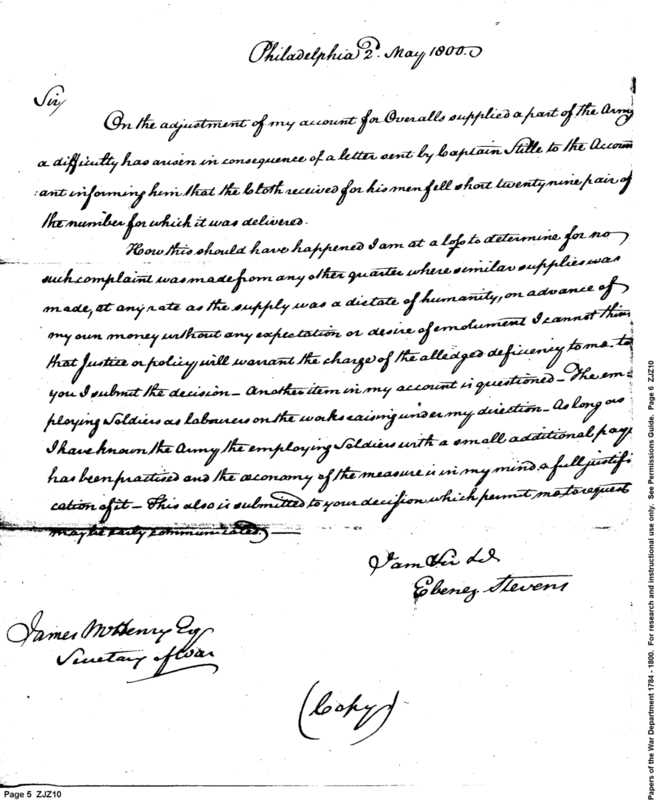 Philadelphia 2d. May 1800.
Sir
On the adjustment of my account for Overalls supplied a part of the Army
a difficulty has arisen in consequence of a letter sent by Captain Stille to the Account
:ant informing him that the Cloth received for his men fell short twenty nine pair of
the number for which it was delivered.
How this should have happened I am at a loss to determine for no
such complaint was made from any other quarter where similar supplies was
made, at any rate as the supply was a dictate of humanity, on advance of
my own money without any expectation or desire of emolument I cannot think
that Justice or policy will warrant the charge of the alledged deficiency to me. to
you I submit the decision – Another item in my account is questioned – The em=
ploying Soldiers as labourers on the works raising under my direction – As long as
I have known the Army the employing Soldiers with a small additional pay
has been practised and the œconomy of the measure is in my mind a full justifi
cation of it – This also is submitted to your decision which permit me to request
may be early communicated. —
I am Sir &c
Ebenez Stevens
James McHenry Esq
Secretary of War
(Copy)
Page 5 ZJZ10
Papers of the War Department 1784 - 1800. For research and instructional use only. See Permissions Guide. Page 6 ZJZ10